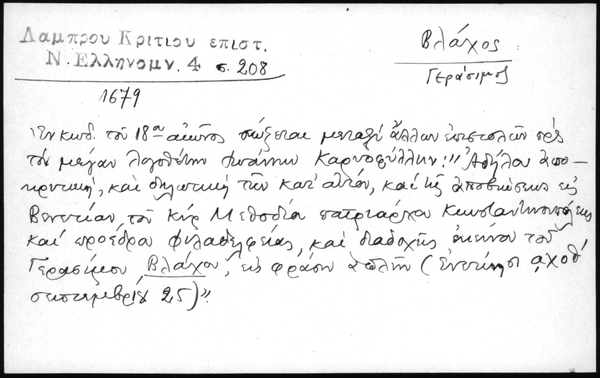 Λαμπρου Κριτιου επιστ.
Ν. Ελληνομν. 4 σ. 208
Βλάχος
Γεράσιμος
1679
Ἐν κωδ. τοῦ 18ου αἰῶνος σώζεται μεταξὺ ἄλλων ἐπιστολῶν πρὸς
τὸν μέγαν λογοθέτην Ἰωάννην Καρυοφύλλην: "Ἀδήλου ἀπο-
κριτική, καὶ δηλωτικὴ τῶν κατ' αὐτόν, καὶ τῆς ἀποβιώσεως εἰς
Βενετίαν, τοῦ κὺρ Μεθοδίου πατριάρχου Κωνσταντινουπόλεως
καὶ προέδρου Φιλαδελφείας, καὶ διαδοχῆς ἐκείνου τοῦ
Γερασίμου Βλάχου, εἰς φράσιν ἁπλῆν (Ἐνετίησι ͵αχοθ'
σεπτεμβρίου 25)".